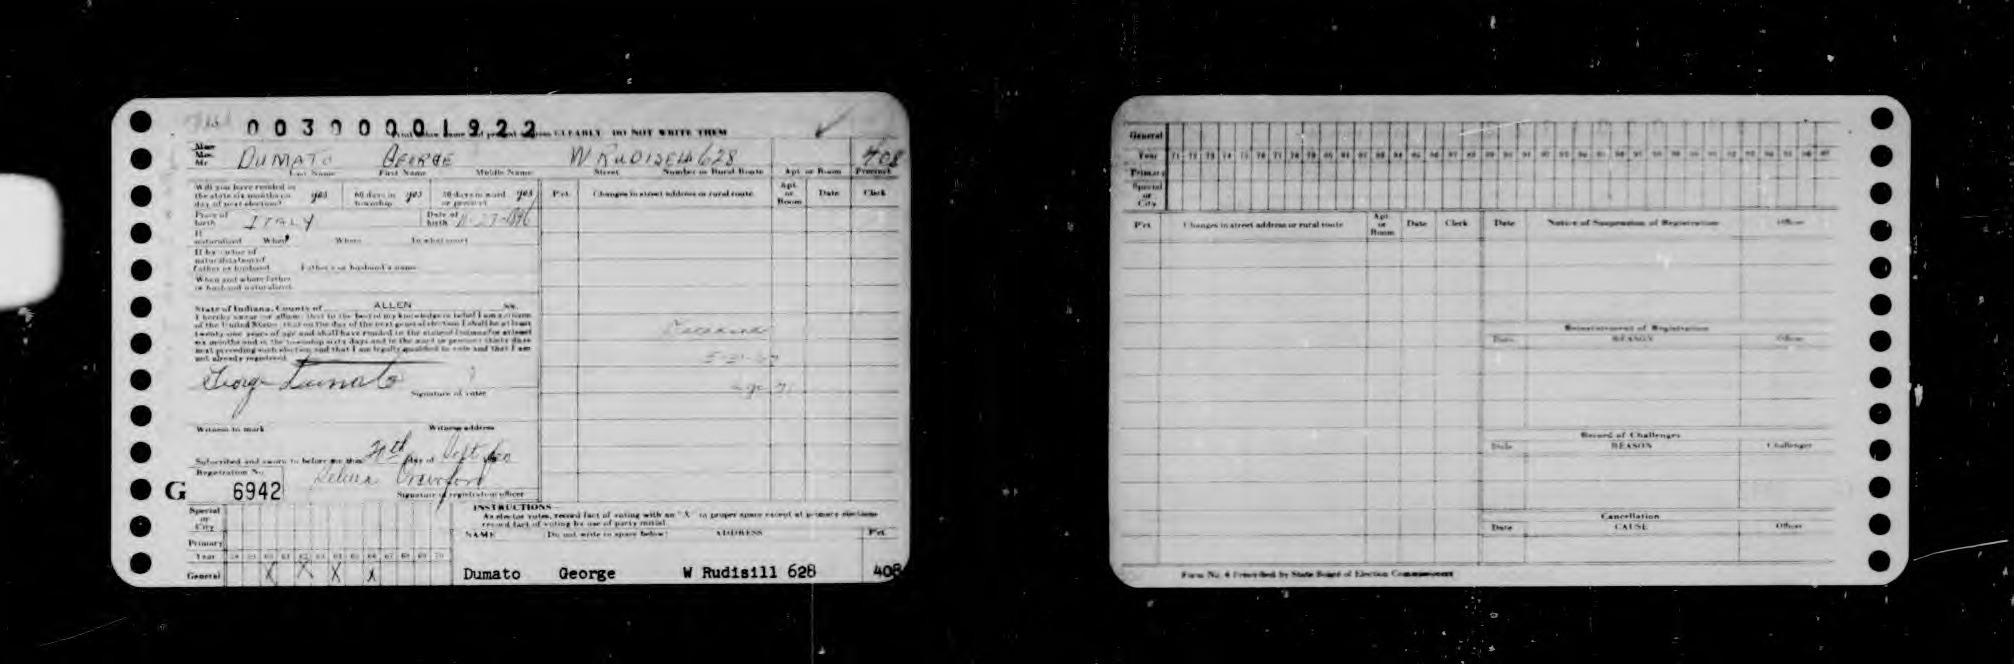 003000001922
CLEARLY DO NOT WRITE THEM
Mr. DUMATO GEORGE W RUDISELL 628 408
Last Name First Name Middle Name Street Number or Rural Route Apt or Room Precinct
Will you have resided in the state six months on day of next election? yes 60 days in township yes 30 days in ward or precinct yes
Pct. Changes in street address or rural route Apt. or Room Date Clerk
Place of birth ITALY Date of birth 11-27-1896
If naturalized When Where In what court
If by virtue of naturalization of father or husband Father's or husband's name
When and where father or husband naturalized
State of Indiana, County of ALLEN ss.
I hereby swear (or affirm) that to the best of my knowledge and belief I am a citizen
of the United States, that on the day of the next general election I shall be at least
twenty-one years of age and shall have resided in the state of Indiana for at least
six months and in the township sixty days and in the ward or precinct thirty days
next preceding such election and that I am legally qualified to vote and that I am
not already registered.
George Dumato
Signature of voter
Deceased
5-21-
Witness to mark Witness address
Subscribed and sworn to before me this 20th day of Sept
Registration No.
G 6942 Crawford
Signature of registration officer
Special or City
Primary
Year 58 59 60 61 62 63 64 65 66 67 68 69 70
General X X X X
INSTRUCTIONS
As elector votes, record fact of voting with an "X" in proper space except at primary elections
record fact of voting by use of party initial.
NAME (Do not write in space below) ADDRESS Pct.
Dumato George W Rudisill 628 408
General
Year 71 72 73 74 75 76 77 78 79 80 81 82 83 84 85 86 87 88 89 90 91 92
Primary
Special or City
Pct. Changes in street address or rural route Apt. or Room Date Clerk Date Notice of Suspension of Registration Officer
Reinstatement of Registration
Date REASON Officer
Record of Challenges
Date REASON Challenger
Cancellation
Date CAUSE Officer
Form No. 4 Prescribed by State Board of Election Commissioners